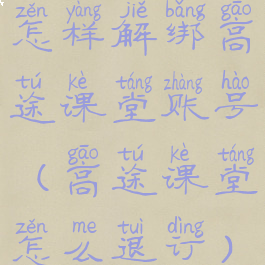 zěn yàng jiě bǎng gāo
怎样解绑高
tú kè táng zhàng hào
途课堂账号
gāo tú kè táng
（高途课堂
zěn me tuì dìng
怎么退订）